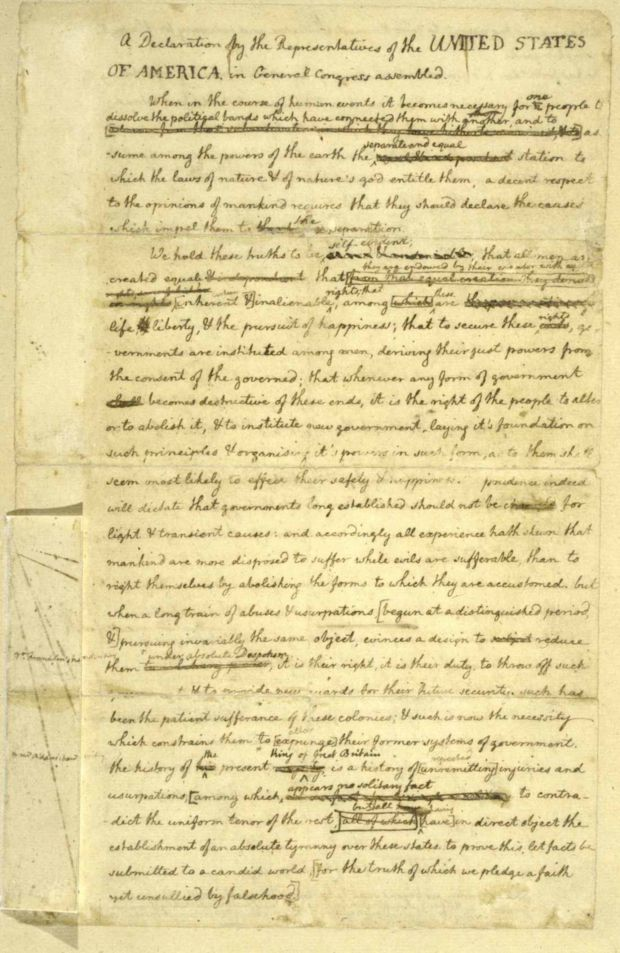 A Declaration by the Representatives of the UNITED STATES
OF AMERICA, in General Congress assembled.
When in the course of human events it becomes necessary for one people to
dissolve the political bands which have connected them with another, and to
as-
-sume among the powers of the earth the separate and equal station to
which the laws of nature & of nature's god entitle them, a decent respect
to the opinions of mankind requires that they should declare the causes
which impel them to the separation.
We hold these truths to be self-evident; that all men are
created equal & independent that they are endowed by their creator with
from that equal creation they derive
rights; that
[inherent &] inalienable, among which these are
life, liberty, & the pursuit of happiness; that to secure these rights, go-
-vernments are instituted among men, deriving their just powers from
the consent of the governed; that whenever any form of government
shall becomes destructive of these ends, it is the right of the people to alter
or to abolish it, & to institute new government, laying it's foundation on
such principles & organising it's powers in such form, as to them shall
seem most likely to effect their safety & happiness. prudence indeed
will dictate that governments long established should not be changed for
light & transient causes: and accordingly all experience hath shewn that
mankind are more disposed to suffer while evils are sufferable, than to
right themselves by abolishing the forms to which they are accustomed. but
when a long train of abuses & usurpations [begun at a distinguished period
&] pursuing invariably the same object, evinces a design to subject reduce
them under absolute Despotism, it is their right, it is their duty, to throw off such
& to provide new guards for their future security. such has
been the patient sufferance of these colonies; & such is now the necessity
which constrains them to alter [expunge] their former systems of government.
the history of the present King of Great Britain is a history of repeated [unremitting] injuries and
usurpations, [among which, appears no solitary fact to contra-
-dict the uniform tenor of the rest, but all [all of which] having [have] in direct object the
establishment of an absolute tyranny over these states. to prove this, let facts be
submitted to a candid world, [for the truth of which we pledge a faith
yet unsullied by falsehood]
Dr. Franklin's handwriting